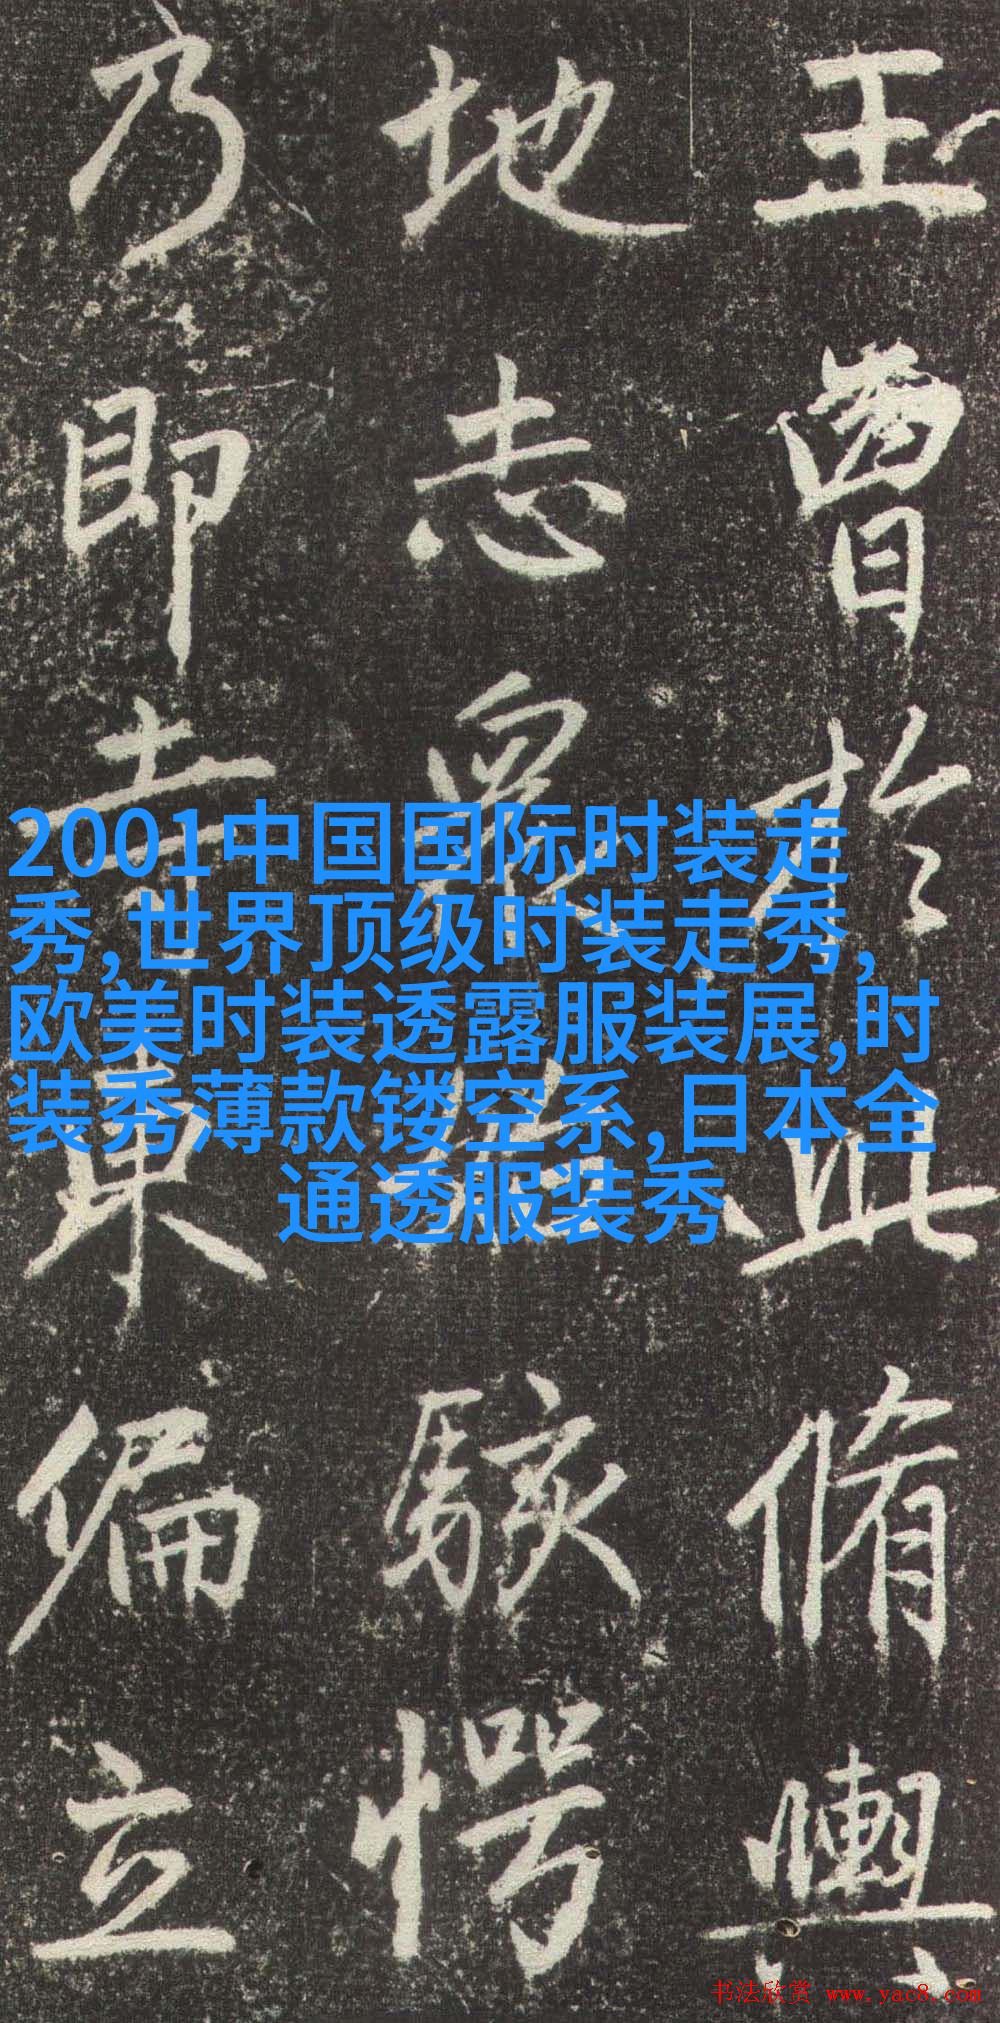 王
曹於
興
脩
輿
地
志
駭
愕
乃
即
東
偏
立
2001中国国际时装走
秀,世界顶级时装走秀,
欧美时装透露服装展,时
装秀薄款镂空系,日本全
通透服装秀
书法欣赏 www.yac8.com